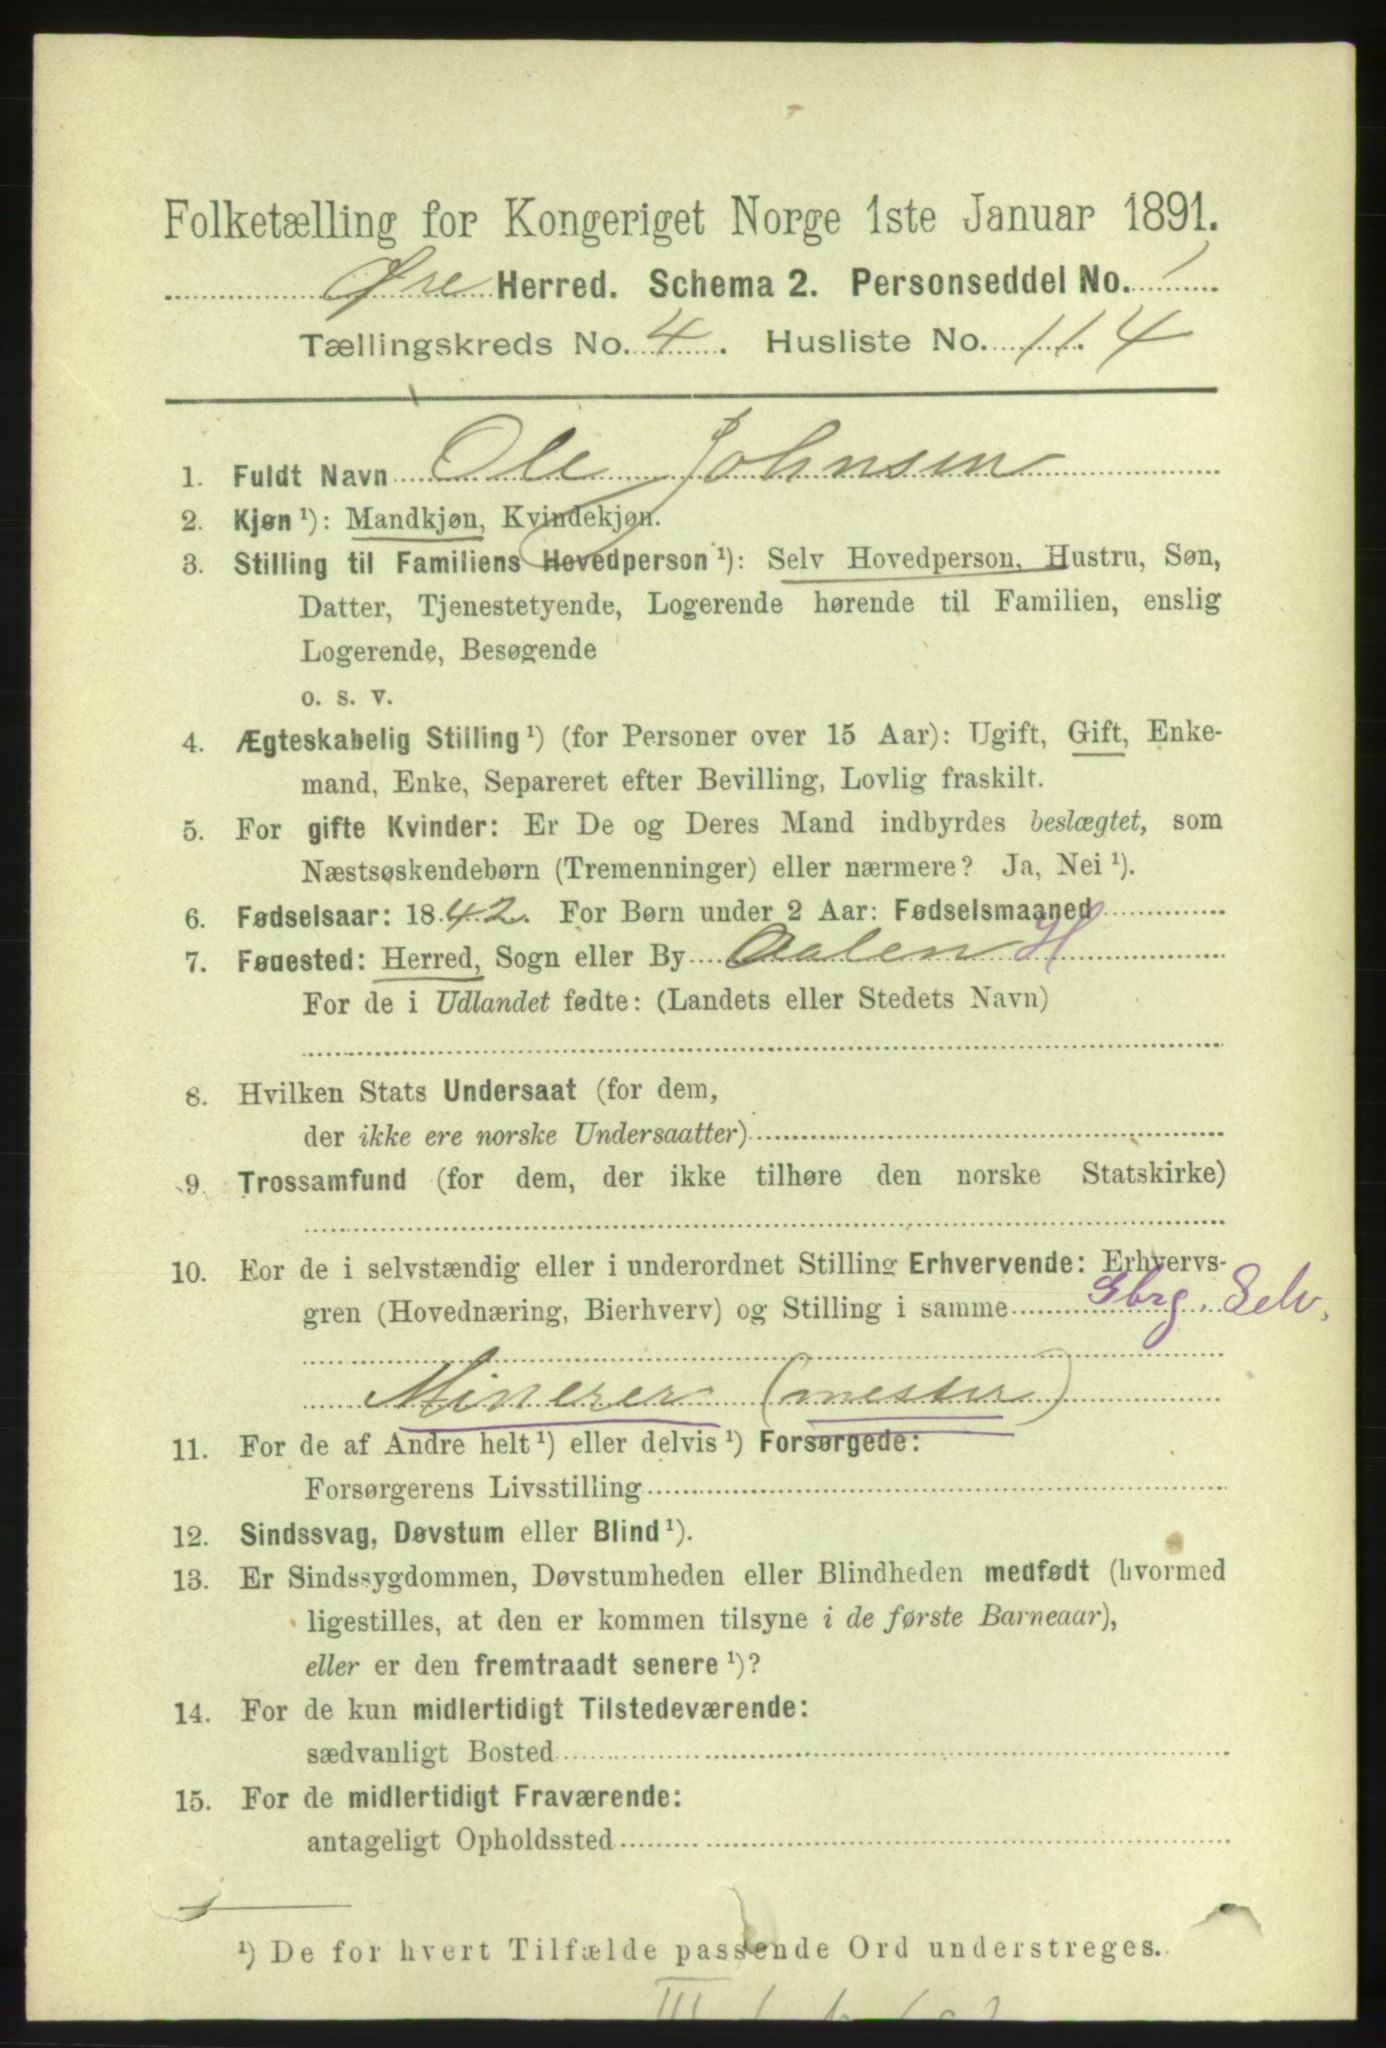 Folketælling for Kongeriget Norge 1ste Januar 1891.
Øre Herred. Schema 2. Personseddel No. 1
Tællingskreds No. 4. Husliste No. 114
1. Fuldt Navn Ole Johnsen
2. Kjøn ¹): Mandkjøn, Kvindekjøn.
3. Stilling til Familiens Hovedperson ¹): Selv Hovedperson, Hustru, Søn,
Datter, Tjenestetyende, Logerende hørende til Familien, enslig
Logerende, Besøgende
o. s. v.
4. Ægteskabelig Stilling ¹) (for Personer over 15 Aar): Ugift, Gift, Enke-
mand, Enke, Separeret efter Bevilling, Lovlig fraskilt.
5. For gifte Kvinder: Er De og Deres Mand indbyrdes beslægtet, som
Næstsøskendebørn (Tremenninger) eller nærmere? Ja, Nei ¹).
6. Fødselsaar: 1842. For Børn under 2 Aar: Fødselsmaaned
7. Føuested: Herred, Sogn eller By Aalen H
For de i Udlandet fødte: (Landets eller Stedets Navn)
8. Hvilken Stats Undersaat (for dem,
der ikke ere norske Undersaatter)
9. Trossamfund (for dem, der ikke tilhøre den norske Statskirke)
10. For de i selvstændig eller i underordnet Stilling Erhvervende: Erhvervs-
gren (Hovednæring, Bierhverv) og Stilling i samme Gbrg. Selv.
Minerer (mester)
11. For de af Andre helt ¹) eller delvis ¹) Forsørgede:
Forsørgerens Livsstilling
12. Sindssvag, Døvstum eller Blind ¹).
13. Er Sindssygdommen, Døvstumheden eller Blindheden medfødt (hvormed
ligestilles, at den er kommen tilsyne i de første Barneaar),
eller er den fremtraadt senere ¹)?
14. For de kun midlertidigt Tilstedeværende:
sædvanligt Bosted
15. For de midlertidigt Fraværende:
antageligt Opholdssted
¹) De for hvert Tilfælde passende Ord understreges.